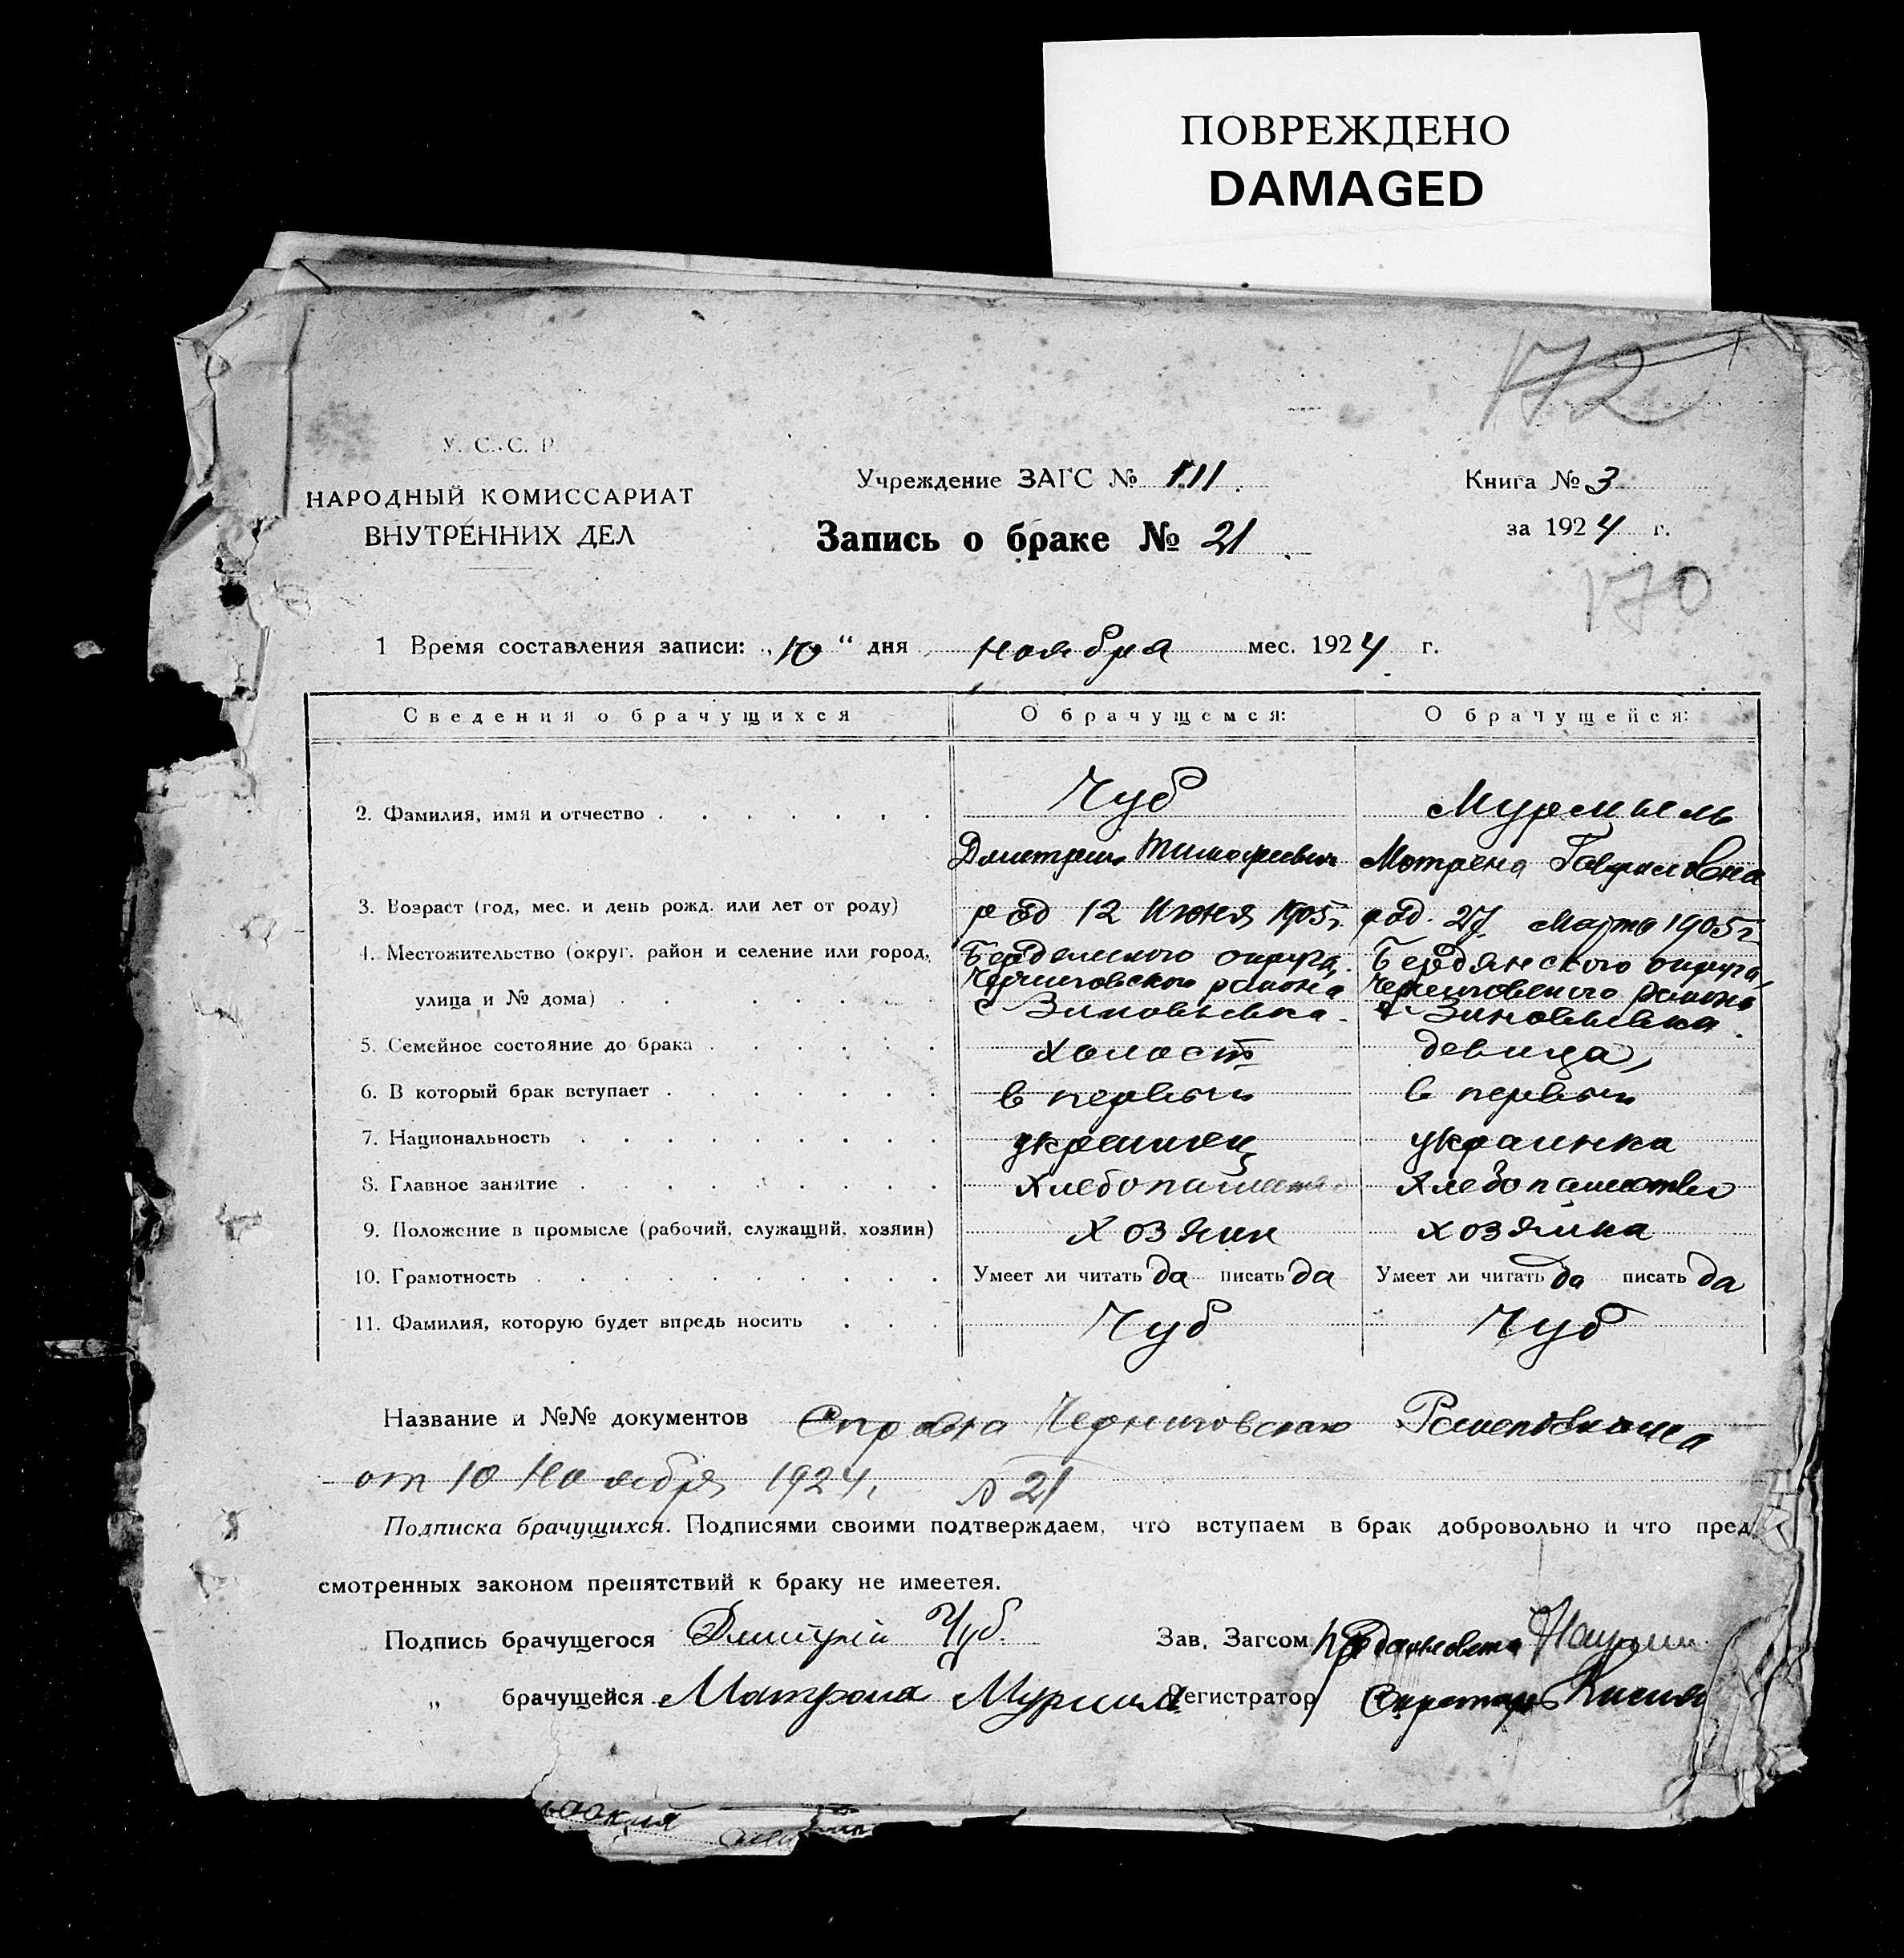 ПОВРЕЖДЕНО
DAMAGED
172
У. С. С. Р.
НАРОДНЫЙ КОМИССАРИАТ
ВНУТРЕННИХ ДЕЛ
Учреждение ЗАГС №
Книга № 3
Запись о браке № 21
за 1924 г.
170
1 Время составления записи: „10“ дня ноября мес. 1924 г.
Сведения о брачущихся О брачущемся: О брачущейся:
2. Фамилия, имя и отчество Чуб
Дмитрий Тимофеевич Мотрена Гавриловна
3. Возраст (год, мес. и день рожд. или лет от роду) род 12 Июня 1905 г. род. 27 Марта 1905 г.
4. Местожительство (округ, район и селение или город, Бердянского округа, Бердянского округа,
Черниговского района Черниговского района
улица и № дома) с Зиновьевка с Зиновьевка
5. Семейное состояние до брака холост девица
6. В который брак вступает в первый в первый
7. Национальность украинец украинка
8. Главное занятие хлебопашество хлебопашество
9. Положение в промысле (рабочий, служащий, хозяин) хозяин хозяйка
10. Грамотность Умеет ли читать да писать да Умеет ли читать да писать да
11. Фамилия, которую будет впредь носить Чуб Чуб
Название и №№ документов Справка Черниговского
от 10 Ноября 1924 г. № 21
Подписка брачущихся. Подписями своими подтверждаем, что вступаем в брак добровольно и что пред
смотренных законом препятствий к браку не имеетея.
Подпись брачущегося Дмитрий Чуб. Зав. Загсом
„ брачущейся Матрона Регистратор Секретарь